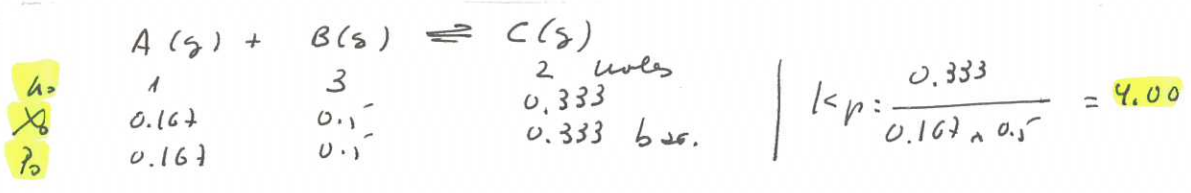 A (g) + B(g) ⇌ C(g)
n₀ 1 3 2 moles
X₀ 0.167 0.5 0.333
P₀ 0.167 0.5 0.333 bar.
Kp: 0.333 / 0.167 × 0.5 = 4.00